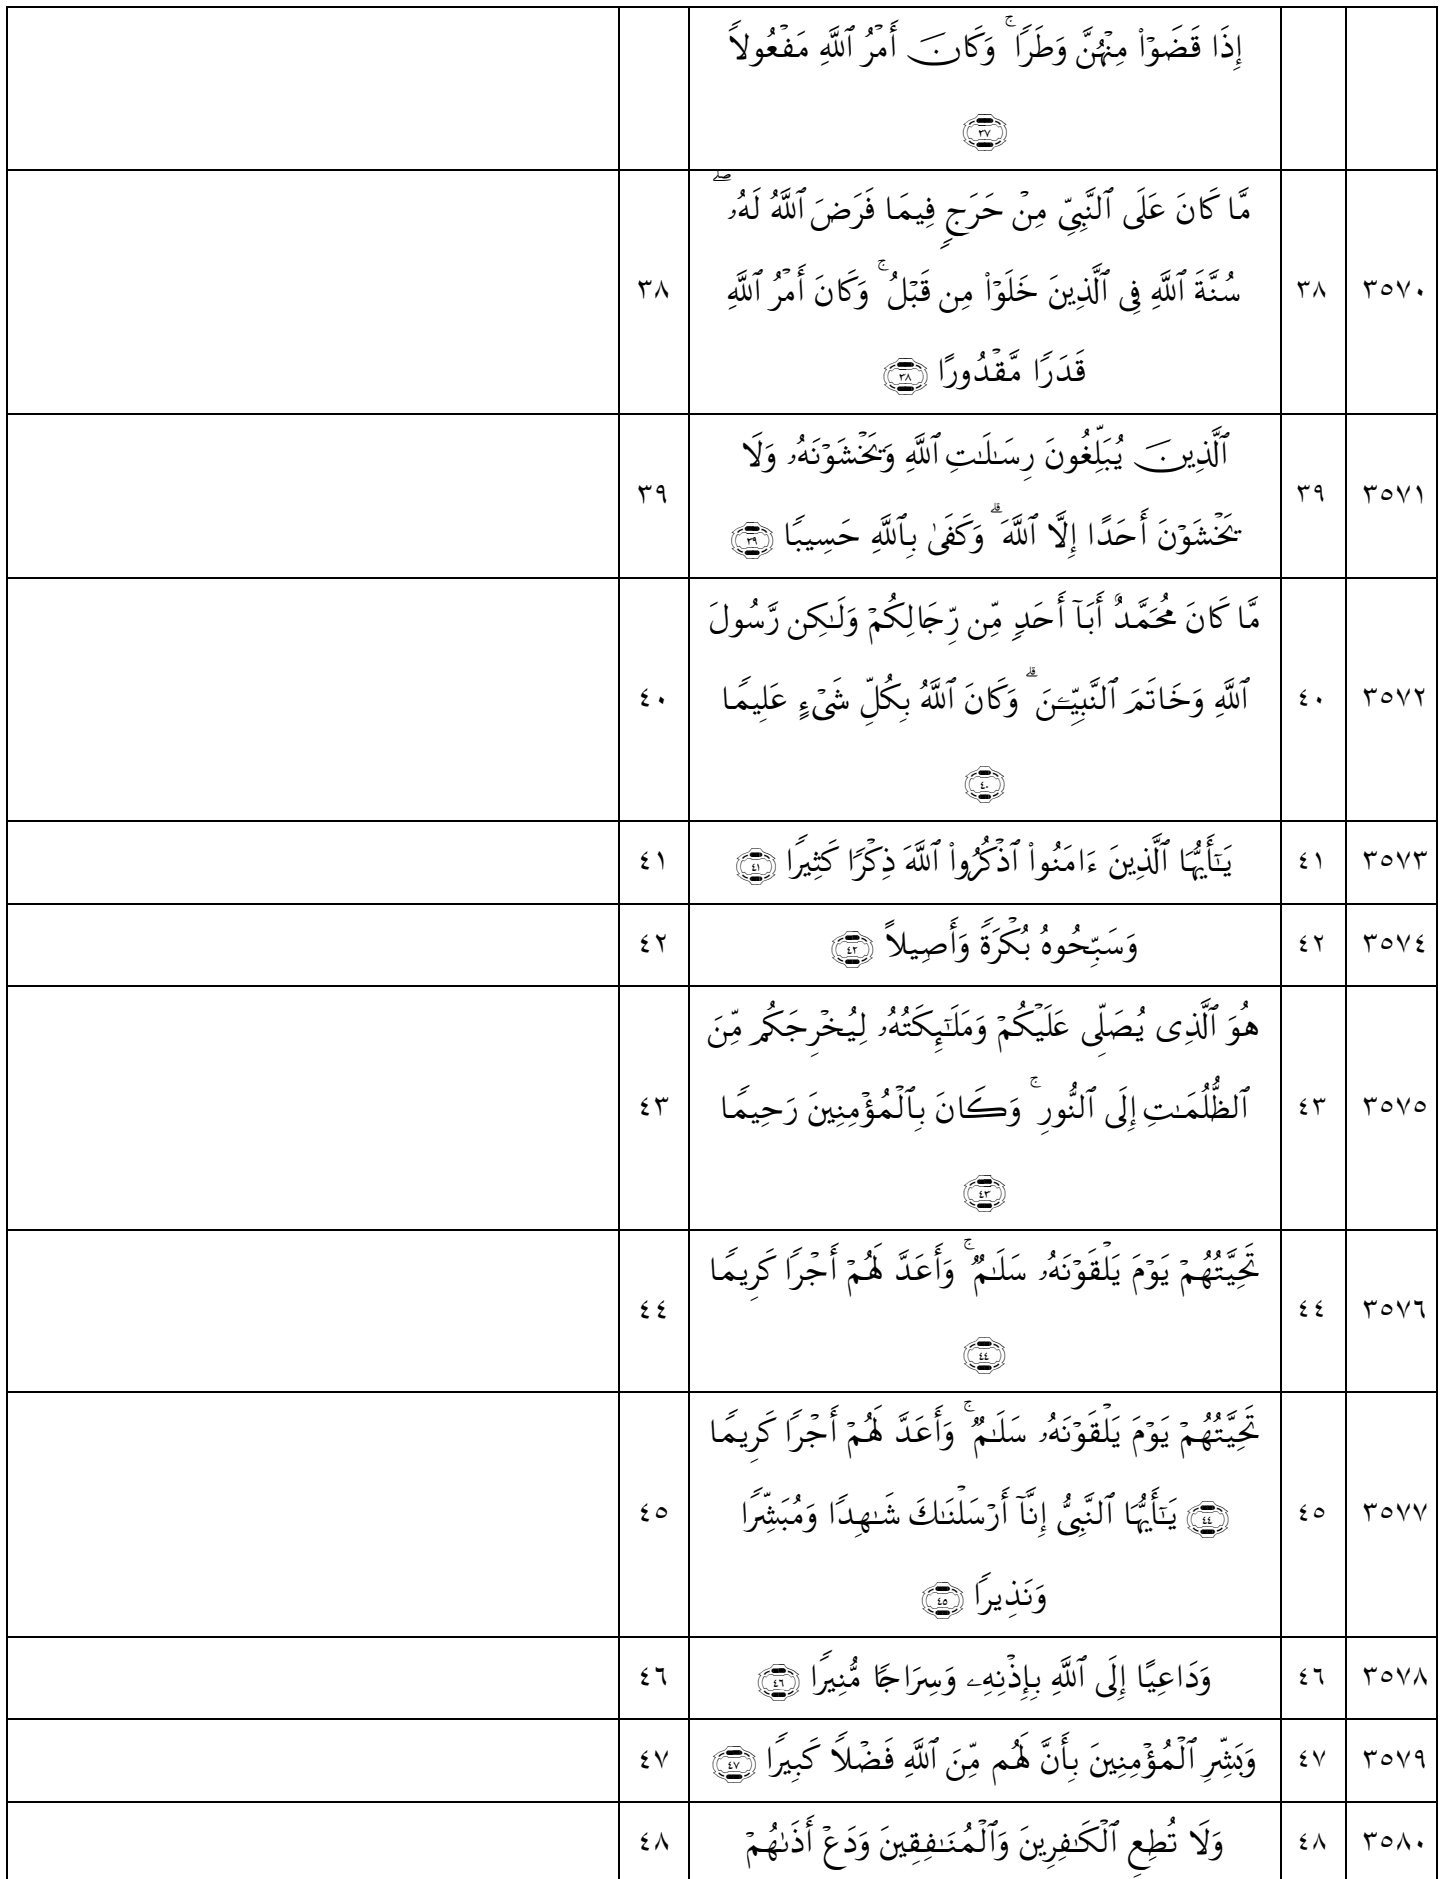 إِذَا قَضَوۡاْ مِنۡهُنَّ وَطَرٗاۚ وَكَانَ أَمۡرُ ٱللَّهِ مَفۡعُولاٗ
٣٧
٣٥٧٠ ٣٨ مَّا كَانَ عَلَى ٱلنَّبِيِّ مِنۡ حَرَجٖ فِيمَا فَرَضَ ٱللَّهُ لَهُۥۖ ٣٨
سُنَّةَ ٱللَّهِ فِي ٱلَّذِينَ خَلَوۡاْ مِن قَبۡلُۚ وَكَانَ أَمۡرُ ٱللَّهِ
قَدَرٗا مَّقۡدُورًا ٣٨
٣٥٧١ ٣٩ ٱلَّذِينَ يُبَلِّغُونَ رِسَٰلَٰتِ ٱللَّهِ وَيَخۡشَوۡنَهُۥ وَلَا ٣٩
يَخۡشَوۡنَ أَحَدًا إِلَّا ٱللَّهَۗ وَكَفَىٰ بِٱللَّهِ حَسِيبٗا ٣٩
٣٥٧٢ ٤٠ مَّا كَانَ مُحَمَّدٌ أَبَآ أَحَدٖ مِّن رِّجَالِكُمۡ وَلَٰكِن رَّسُولَ ٤٠
ٱللَّهِ وَخَاتَمَ ٱلنَّبِيِّـۧنَۗ وَكَانَ ٱللَّهُ بِكُلِّ شَيۡءٍ عَلِيمٗا
٤٠
٣٥٧٣ ٤١ يَٰٓأَيُّهَا ٱلَّذِينَ ءَامَنُواْ ٱذۡكُرُواْ ٱللَّهَ ذِكۡرٗا كَثِيرٗا ٤١ ٤١
٣٥٧٤ ٤٢ وَسَبِّحُوهُ بُكۡرَةٗ وَأَصِيلاً ٤٢ ٤٢
٣٥٧٥ ٤٣ هُوَ ٱلَّذِي يُصَلِّي عَلَيۡكُمۡ وَمَلَٰٓئِكَتُهُۥ لِيُخۡرِجَكُم مِّنَ ٤٣
ٱلظُّلُمَٰتِ إِلَى ٱلنُّورِۚ وَكَانَ بِٱلۡمُؤۡمِنِينَ رَحِيمٗا
٤٣
٣٥٧٦ ٤٤ تَحِيَّتُهُمۡ يَوۡمَ يَلۡقَوۡنَهُۥ سَلَٰمٞۚ وَأَعَدَّ لَهُمۡ أَجۡرٗا كَرِيمٗا ٤٤
٤٤
٣٥٧٧ ٤٥ تَحِيَّتُهُمۡ يَوۡمَ يَلۡقَوۡنَهُۥ سَلَٰمٞۚ وَأَعَدَّ لَهُمۡ أَجۡرٗا كَرِيمٗا ٤٥
٤٤ يَٰٓأَيُّهَا ٱلنَّبِيُّ إِنَّآ أَرۡسَلۡنَٰكَ شَٰهِدٗا وَمُبَشِّرٗا
وَنَذِيرٗا ٤٥
٣٥٧٨ ٤٦ وَدَاعِيًا إِلَى ٱللَّهِ بِإِذۡنِهِۦ وَسِرَاجٗا مُّنِيرٗا ٤٦ ٤٦
٣٥٧٩ ٤٧ وَبَشِّرِ ٱلۡمُؤۡمِنِينَ بِأَنَّ لَهُم مِّنَ ٱللَّهِ فَضۡلاٗ كَبِيرٗا ٤٧ ٤٧
٣٥٨٠ ٤٨ وَلَا تُطِعِ ٱلۡكَٰفِرِينَ وَٱلۡمُنَٰفِقِينَ وَدَعۡ أَذَىٰهُمۡ ٤٨